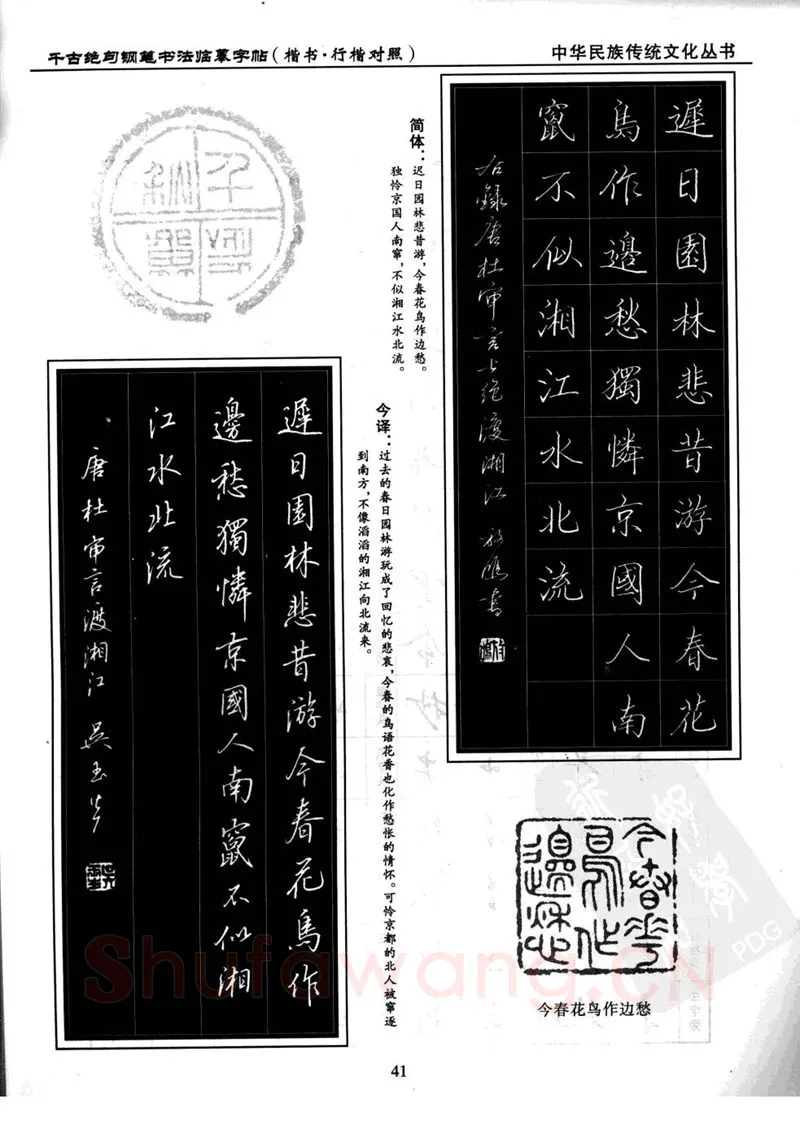 千古绝句钢笔书法临摹字帖(楷书·行楷对照)
中华民族传统文化丛书
遲日園林悲昔游今春花
鳥作邊愁獨憐京國人南
竄不似湘江水北流
右錄唐杜审言七绝渡湘江
简体：迟日园林悲昔游，今春花鸟作边愁。
独怜京国人南窜，不似湘江水北流。
今译：过去的春日园林游玩成了回忆的悲哀，今春的鸟语花香也化作愁怅的情怀。可怜京都的北人被窜逐
到南方，不像滔滔的湘江向北流来。
遲日園林悲昔游今春花鳥作
邊愁獨憐京國人南竄不似湘
江水北流
唐杜审言渡湘江 吴玉生
今春花
鳥作
邊愁
今春花鸟作边愁
41
Shufawang.CN
PDG